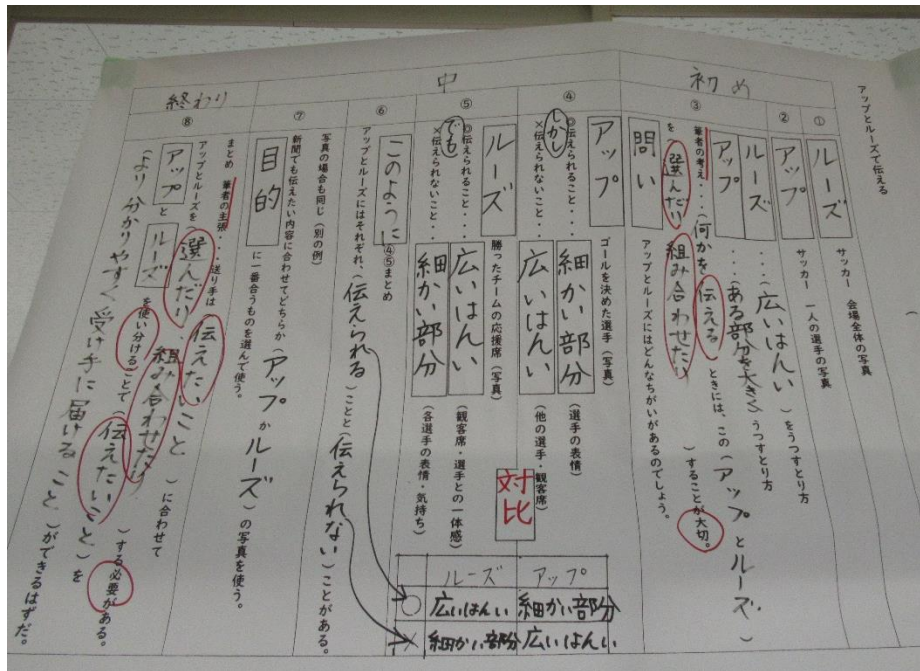 アップとルーズで伝える
初め
①
ルーズ サッカー 会場全体の写真
②
アップ サッカー 一人の選手の写真
③
ルーズ ・・・(広いはんい)をうつすとり方
アップ ・・・(ある部分を大きくうつすとり方
筆者の考え・・・(何かを伝える)ときには、この(アップとルーズ)
を選んだり組み合わせたり)することが大切。
問い アップとルーズにはどんなちがいがあるのでしょう。
中
④
アップ ゴールを決めた選手(写真)
◎伝えられること・・・細かい部分(選手の表情)
しかし
×伝えられないこと・・・広いはんい(他の選手・観客席)
対比
⑤
ルーズ 勝ったチームの応援席(写真)
◎伝えられること・・・広いはんい(観客席・選手との一体感)
でも
×伝えられないこと・・・細かい部分(各選手の表情・気持ち)
⑥
このように ④⑤まとめ
アップとルーズにはそれぞれ、(伝えられる)ことと(伝えられない)ことがある。
ルーズ アップ
○ 広いはんい 細かい部分
× 細かい部分 広いはんい
⑦
写真の場合も同じ(別の例)
新聞でも伝えたい内容に合わせてどちらか(アップかルーズ)の写真を使う。
目的に一番合うものを選んで使う。
終わり
⑧
まとめ 筆者の主張・・・送り手は伝えたいこと)に合わせて
アップとルーズを(選んだり組み合わせたり)する必要がある。
アップとルーズを使い分けることで(伝えたいこと)を
(より分かりやすく受け手に届けること)ができるはずだ。